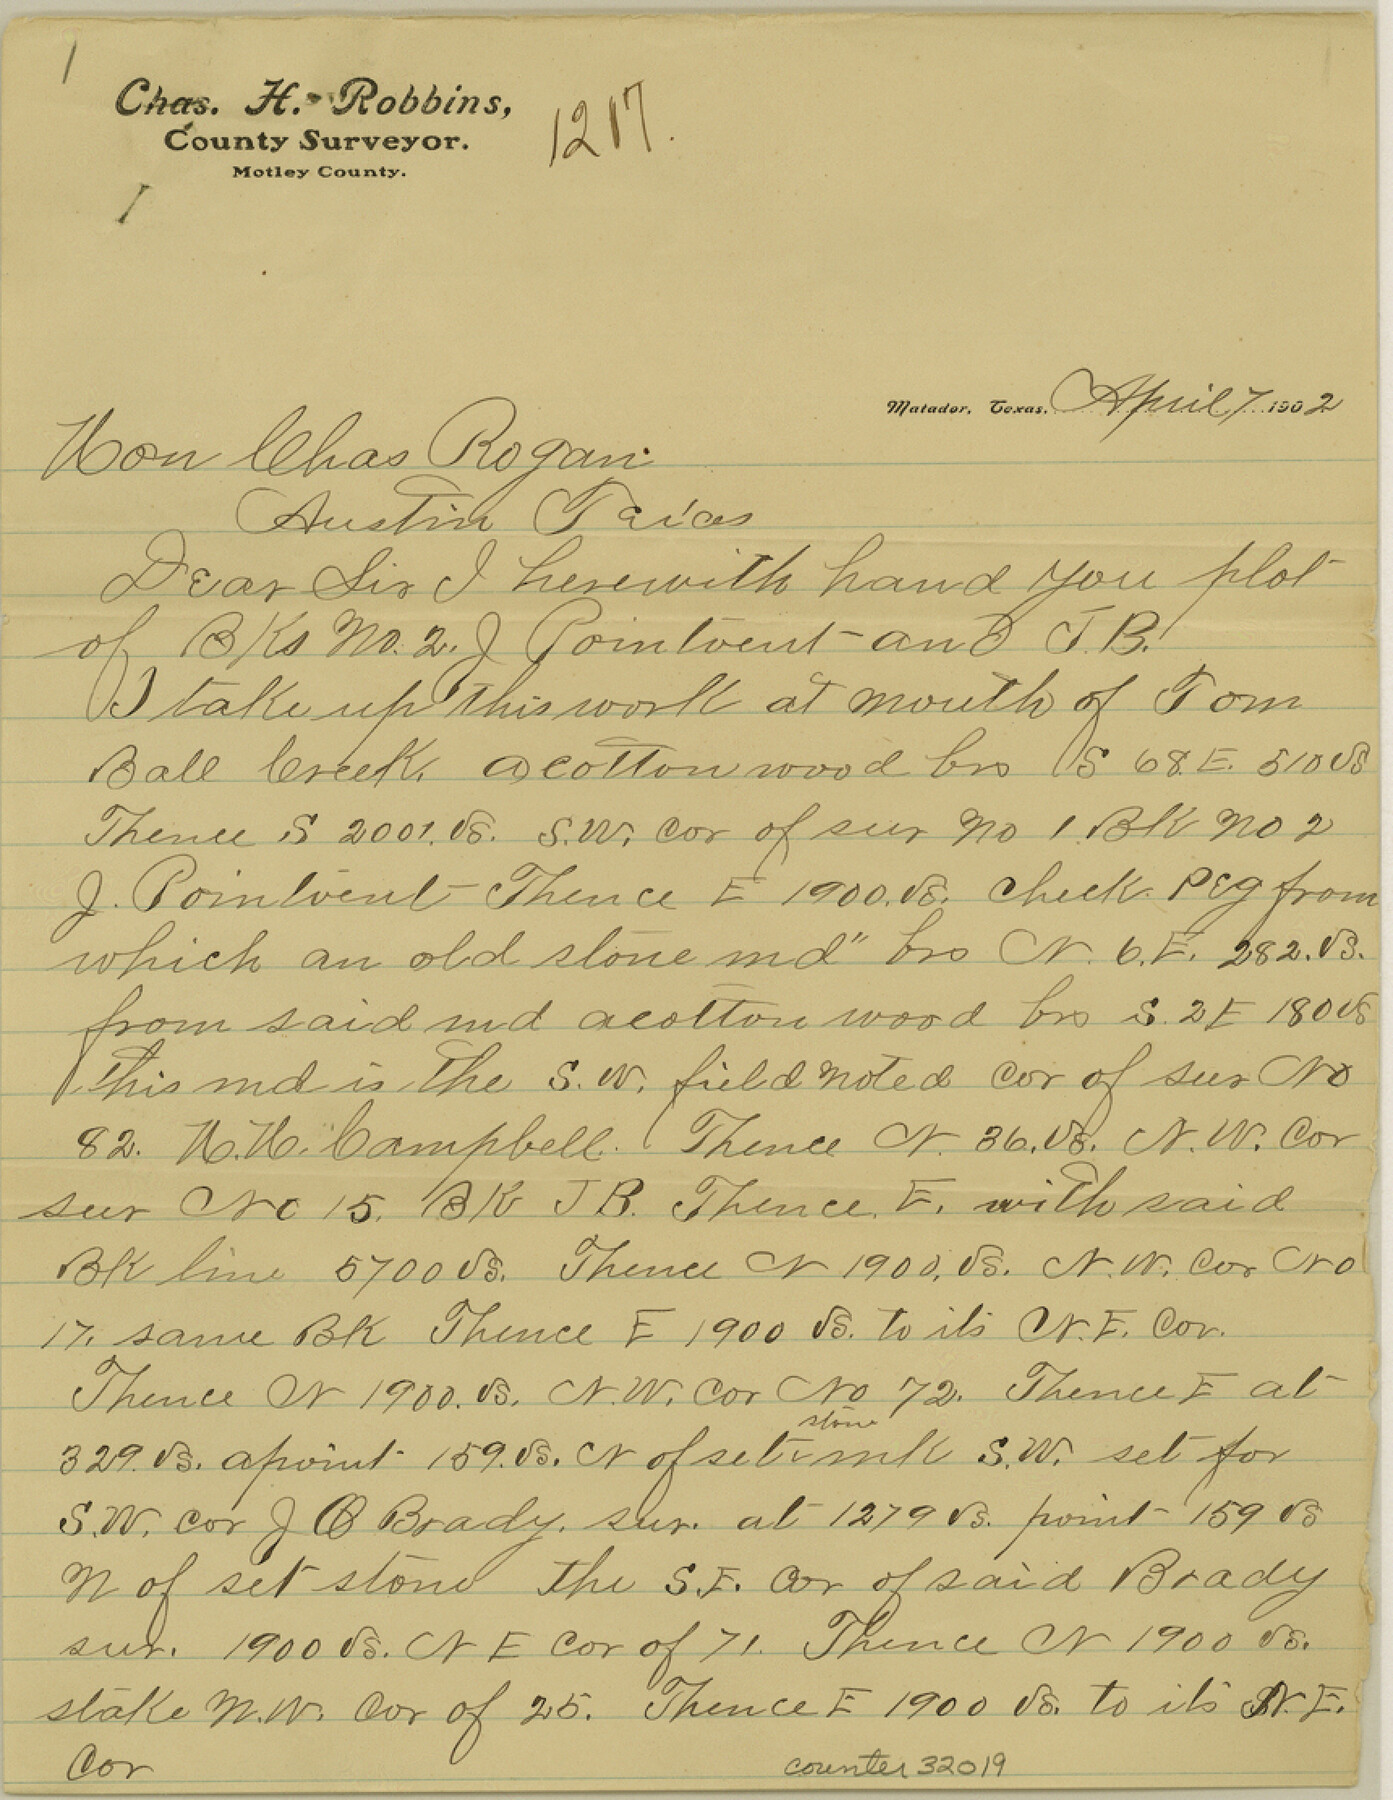 1
Chas. H. Robbins,
County Surveyor.
Motley County.
1217.
I
Matador, Texas, April 7 1902
Hon Chas Rogan
Austin Texas
Dear Sir I herewith hand you plot
of BKs No. 2. J Pointvent and J.B.
I take up this work at mouth of Tom
Ball Creek. a cotton wood brs S 68. E. 510 vs
Thence S 2001. vs. S.W. cor of sur No 1. BK No 2
J. Pointvent Thence E 1900. vs. check Peg from
which an old stone md" brs N. 6. E. 282. vs.
from said md a cotton wood brs S. 2 E 180 vs
this md is the S.W. field noted cor of sur No
82. H.H. Campbell. Thence N. 36. vs. N.W. Cor
sur No 15. BK J B. Thence. E. with said
BK line 5700 vs. Thence N 1900. vs. N.W. Cor No
17. same BK Thence E 1900 vs. to its N.E. Cor.
Thence N 1900. vs. N.W. Cor No 72. Thence E at
stone
329. vs. a point 159. vs. N of set mk S.W. set for
S.W. cor J B Brady. sur. at 1279 vs. point 159 vs
N of set stone the S.E. Cor of said Brady
sur. 1900 vs. N E cor of 71. Thence N 1900 vs.
stake N.W. Cor of 25. Thence E 1900 vs. to its N.E.
Cor
counter 32019